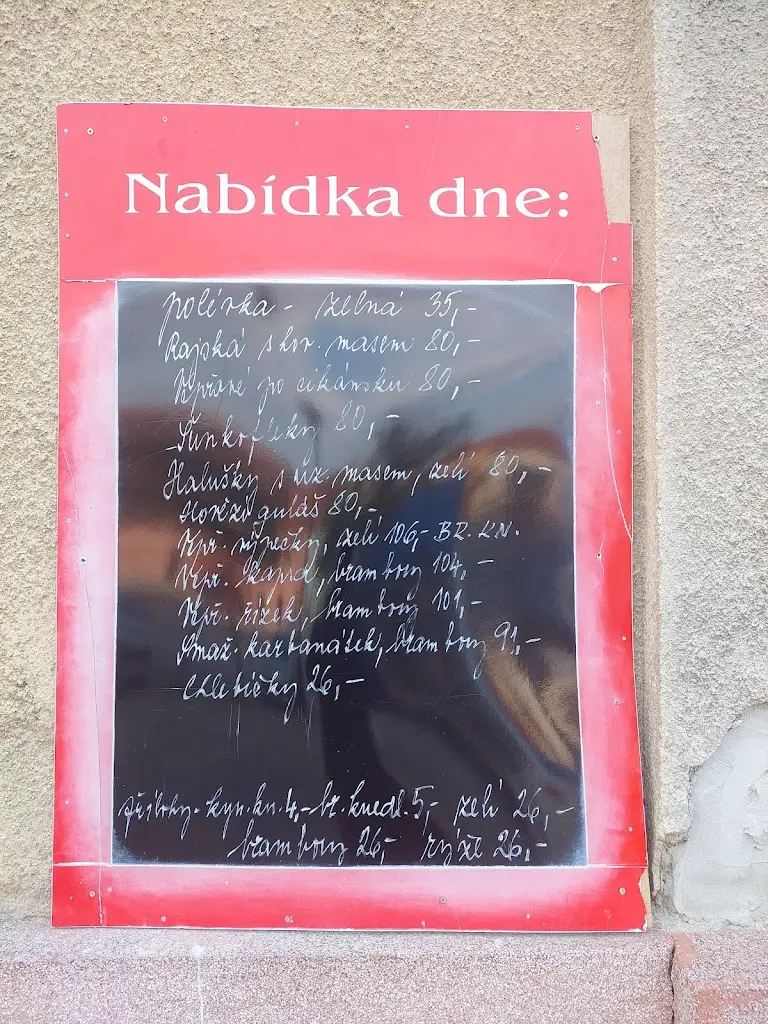 Nabídka dne:
polévka - zelná 35,-
Rajská s hov. masem 80,-
Vepřové po cikánsku 80,-
Šunkofleky 80,-
Halušky s uz. masem, zelí 80,-
Hovězí guláš 80,-
Vepř. výpečky, zelí 106,- BR. KN.
Vepř. kapsa, brambory 104,-
Vepř. řízek, brambory 101,-
Smaž. karbanátek, brambory 91,-
Chlebíčky 26,-
přílohy - kyn. kn. 4,- br. knedl. 5,- zelí 26,-
brambory 26,- rýže 26,-